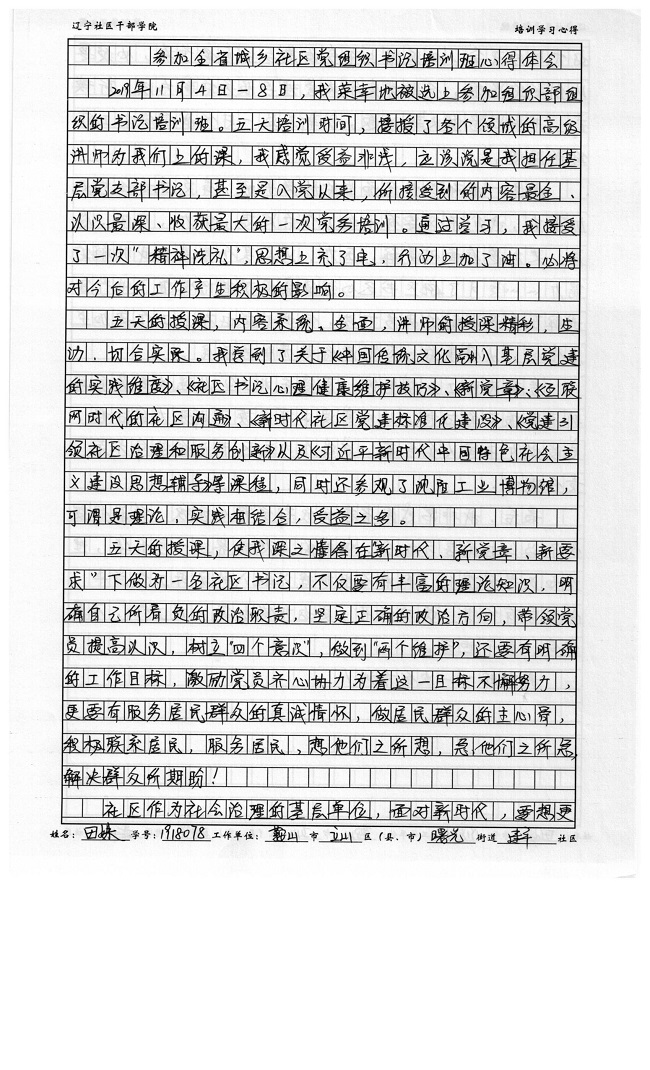 辽宁社区干部学院 培训学习心得
参加全省城乡社区党组织书记培训班心得体会
2019年11月4日—8日，我荣幸地被选上参加组织部组
织的书记培训班。五天培训时间，接授了各个领域的高级
讲师为我们上的课，我感觉受益非浅，应该说是我担任基
层党支部书记，甚至是入党以来，所接受到的内容最全、
认识最深、收获最大的一次党务培训。通过学习，我接受
了一次“精神洗礼”，思想上充了电，行动上加了油。必将
对今后的工作产生积极的影响。
五天的授课，内容系统、全面，讲师的授课精彩，生
动，切合实际。我看到了关于《中国传统文化融入基层党建
的实践维度》、《社区书记心理健康维护技巧》、《新党章》、《互联
网时代的社区沟通》、《新时代社区党建标准化建设》、《党建引
领社区治理和服务创新》以及《习近平新时代中国特色社会主
义建设思想辅导》等课程，同时还参观了沈阳工业博物馆，
可谓是理论，实践相结合，受益之多。
五天的授课，使我深之懂得在“新时代、新党章、新要
求”下做好一名社区书记，不仅要有丰富的理论知识，明
确自己所肩负的政治职责，坚定正确的政治方向，带领党
员提高认识，树立“四个意识”，做到“两个维护”，还要有明确
的工作目标，激励党员齐心协力为着这一目标不懈努力，
更要有服务居民群众的真诚情怀，做居民群众的主心骨，
积极联系居民，服务居民，想他们之所想，急他们之所急，
解决群众所期盼！
社区作为社会治理的基层单位，面对新时代，要想更
姓名：田姝 学号：1918078 工作单位：鞍山 市 立山 区（县、市） 曙光 街道 社区